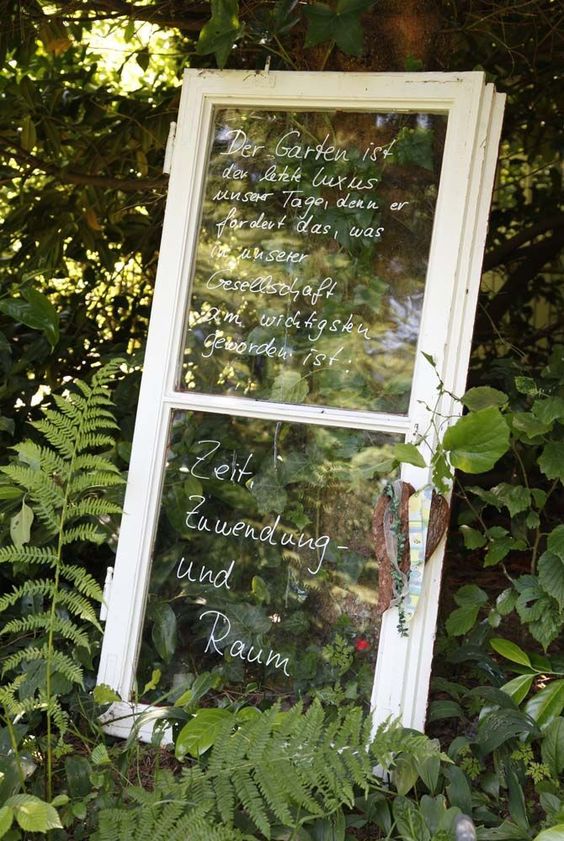 Der Garten ist
der letzte Luxus
unserer Tage, denn er
fordert das, was
in unserer
Gesellschaft
am wichtigsten
geworden ist:
Zeit,
Zuwendung-
und
Raum